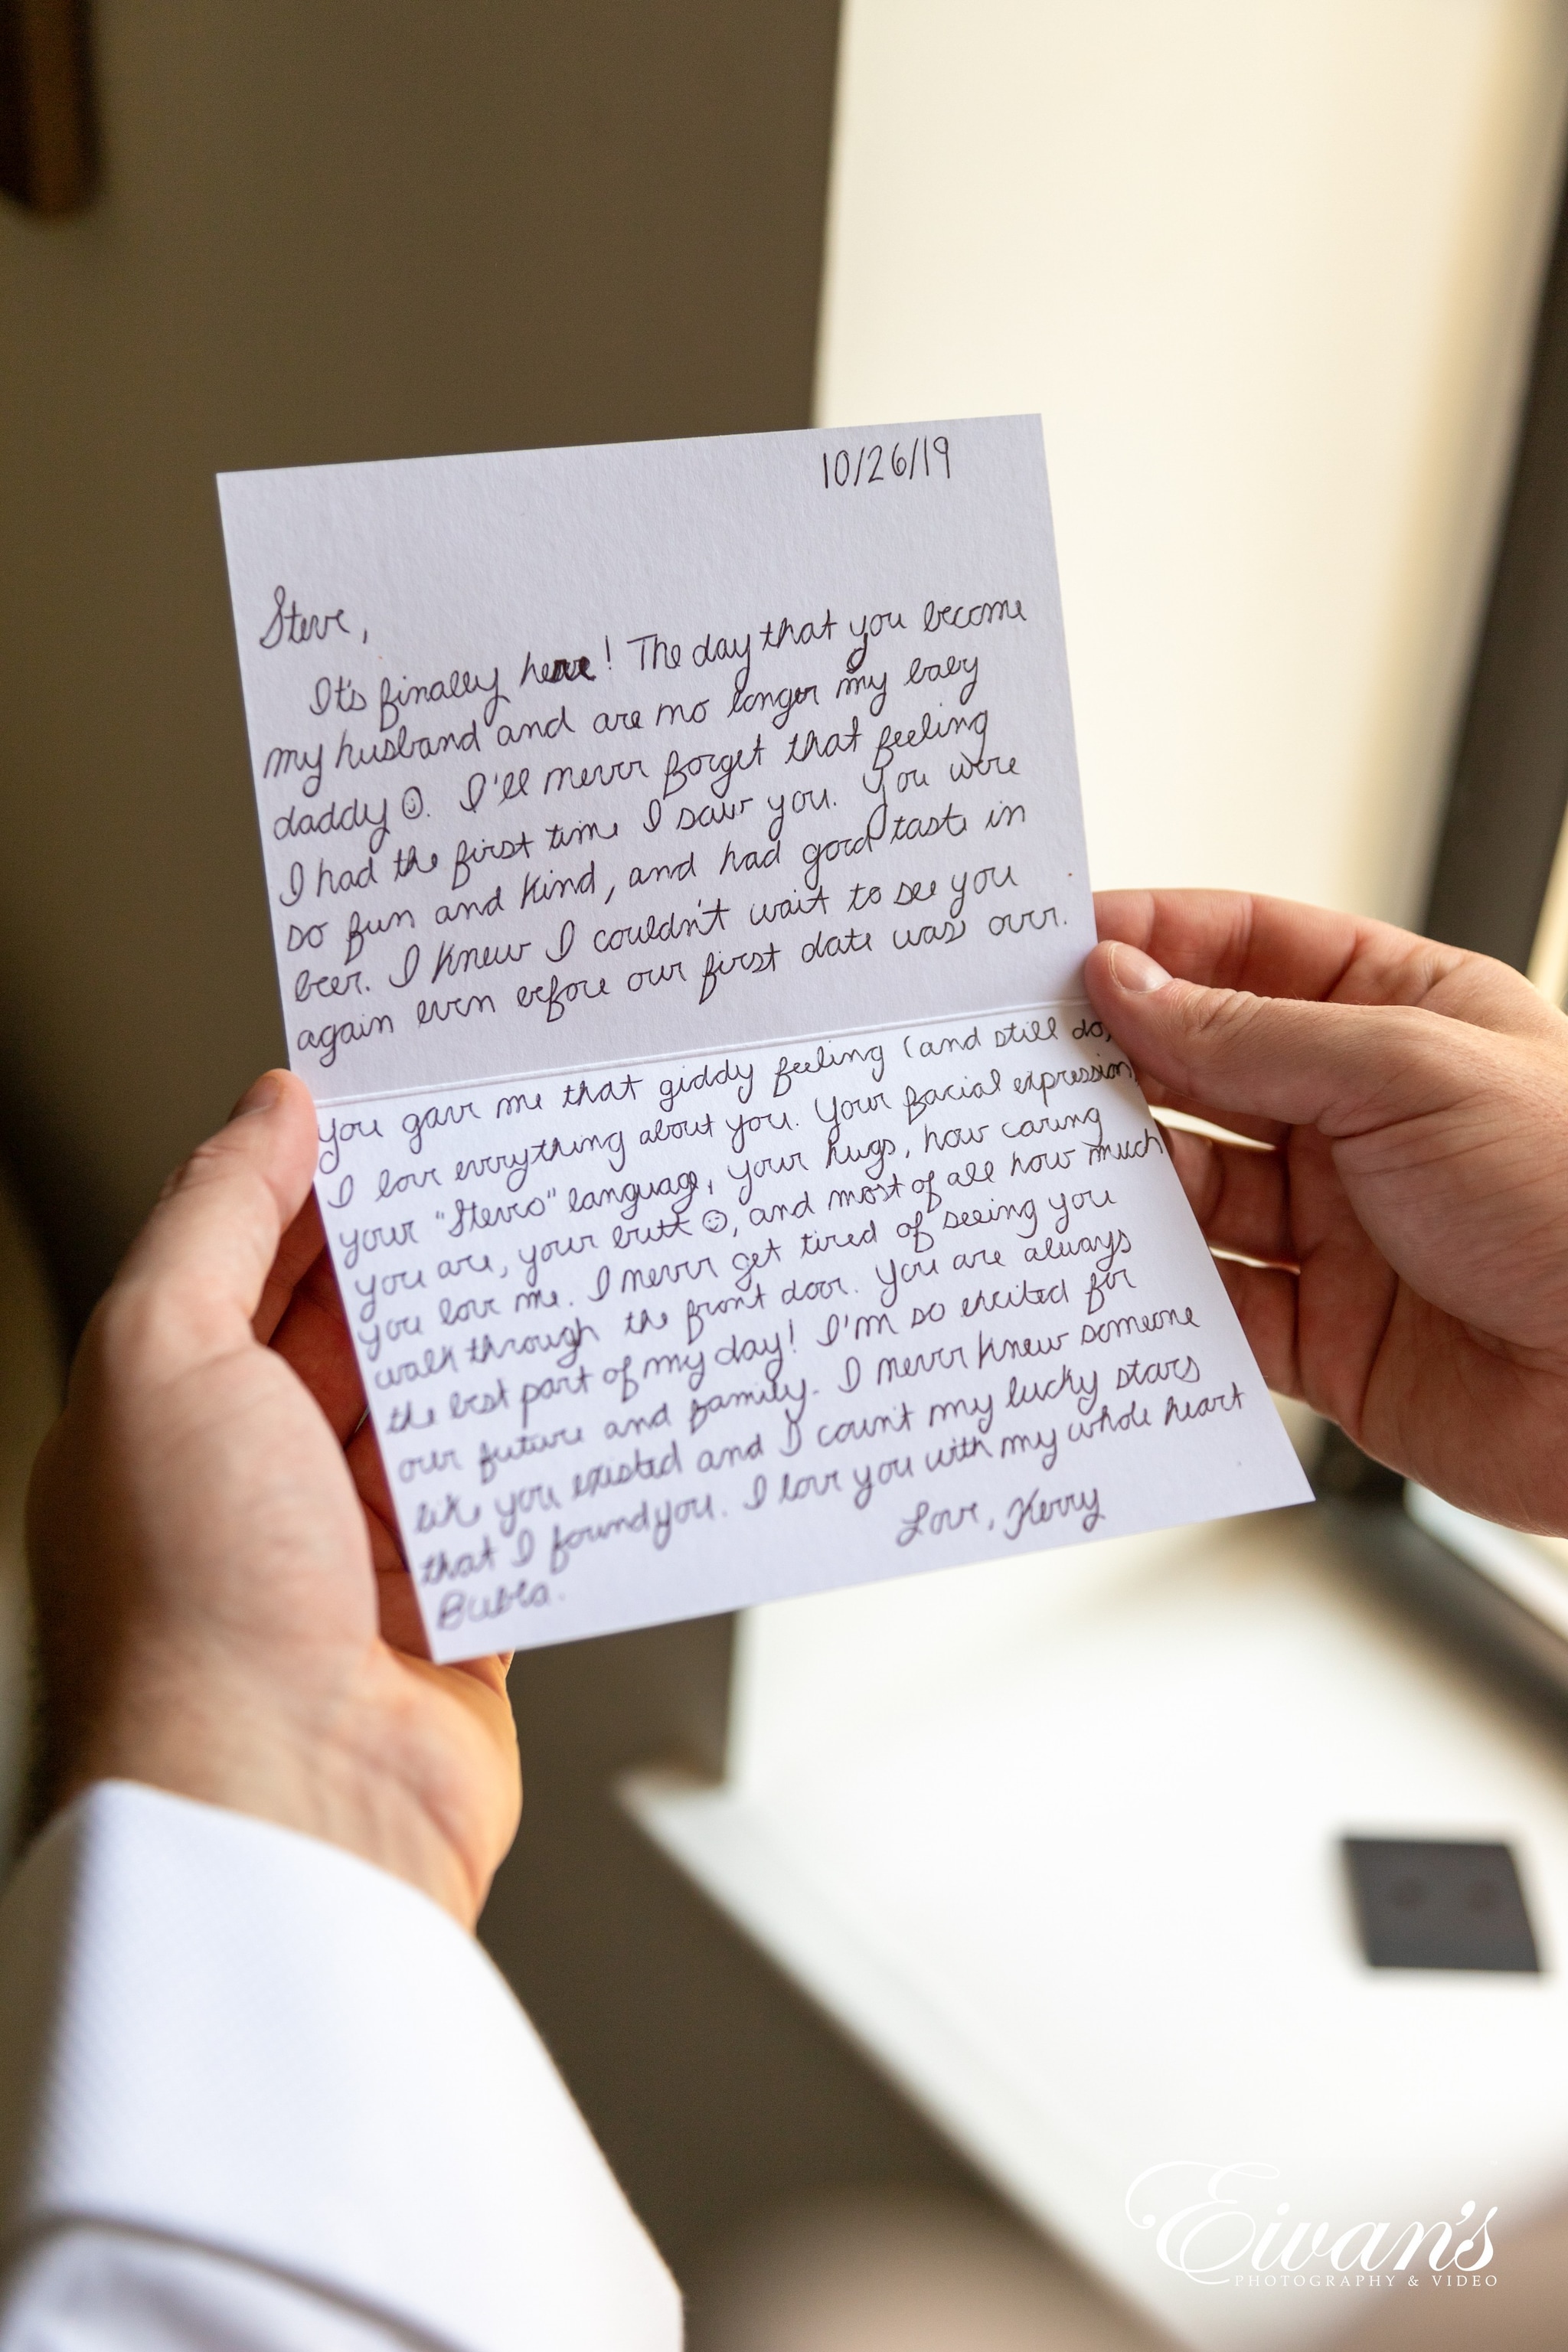 10/26/19
Steve,
It's finally here! The day that you become
my husband and are no longer my baby
daddy ☺. I'll never forget that feeling
I had the first time I saw you. You were
so fun and kind, and had good taste in
beer. I knew I couldn't wait to see you
again even before our first date was over.
You gave me that giddy feeling (and still do)
I love everything about you. Your facial expression
your "Stevo" language, your hugs, how caring
you are, your butt ☺, and most of all how much
you love me. I never get tired of seeing you
walk through the front door. You are always
the best part of my day! I'm so excited for
our future and family. I never knew someone
like you existed and I count my lucky stars
that I found you. I love you with my whole heart
Bubba.
Love, Kerry
Eivan's
PHOTOGRAPHY & VIDEO